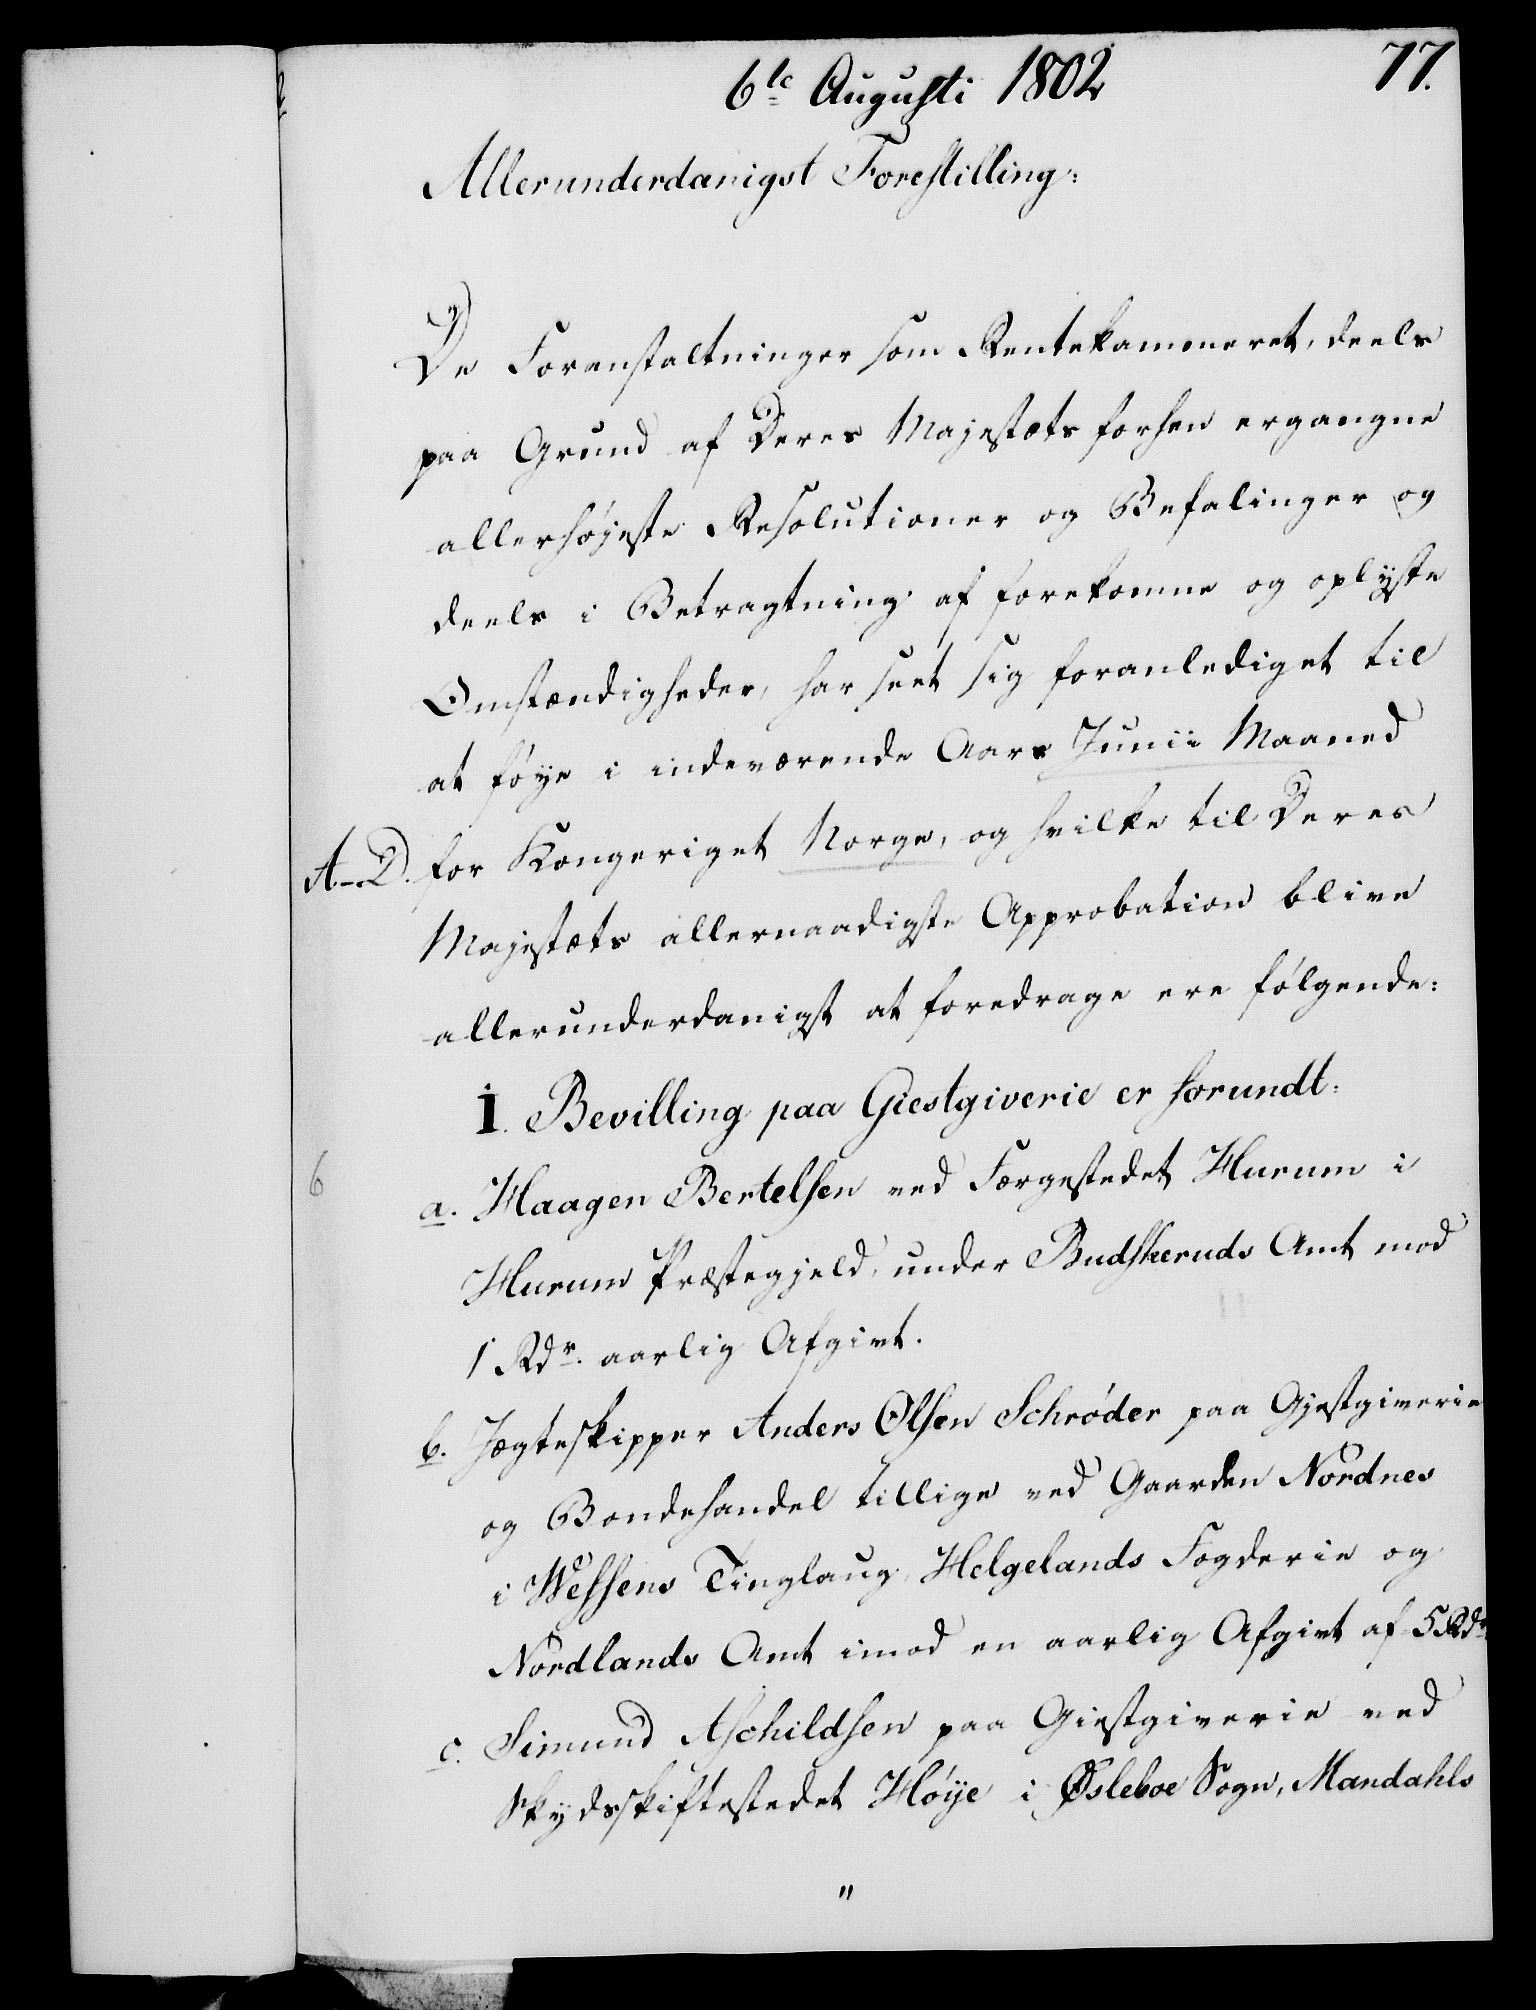 6te Augusti 1802
77.
Allerunderdanigst Forestilling:
De Foranstaltninger som Rentekammeret, deels
paa Grund af Deres Majestæts forhen ergangne
allerhøjeste Resolutioner og Befalinger og
deels i Betragtning af forekomne og oplyste
Omstændigheder, har seet sig foranlediget til
at føye i indeværende Aars Junii Maaned
A-D. for Kongeriget Norge, og hvilke til Deres
Majestæts allernaadigste Approbation blive
allerunderdanigst at foredrage ere følgende:
I. Bevilling paa Giestgiverie er forundt:
6
a. Haagen Bertelsen ved Færgestedet Hurum i
Hurum Præstegjeld, under Budskeruds Amt mod
1 Rdr. aarlig Afgivt.
b. Jægteskipper Anders Olsen Schrøder paa Gjestgiverie
og Bondehandel tillige ved Gaarden Nordnes
i Wefsens Tinglaug, Helgelands Fogderie og
Nordlands Amt imod en aarlig Afgivt af 5 Rdr.
c. Simund Aschildsen paa Giestgiverie ved
Skydsskiftestedet Høije i Øsleboe Sogn, Mandahls
"